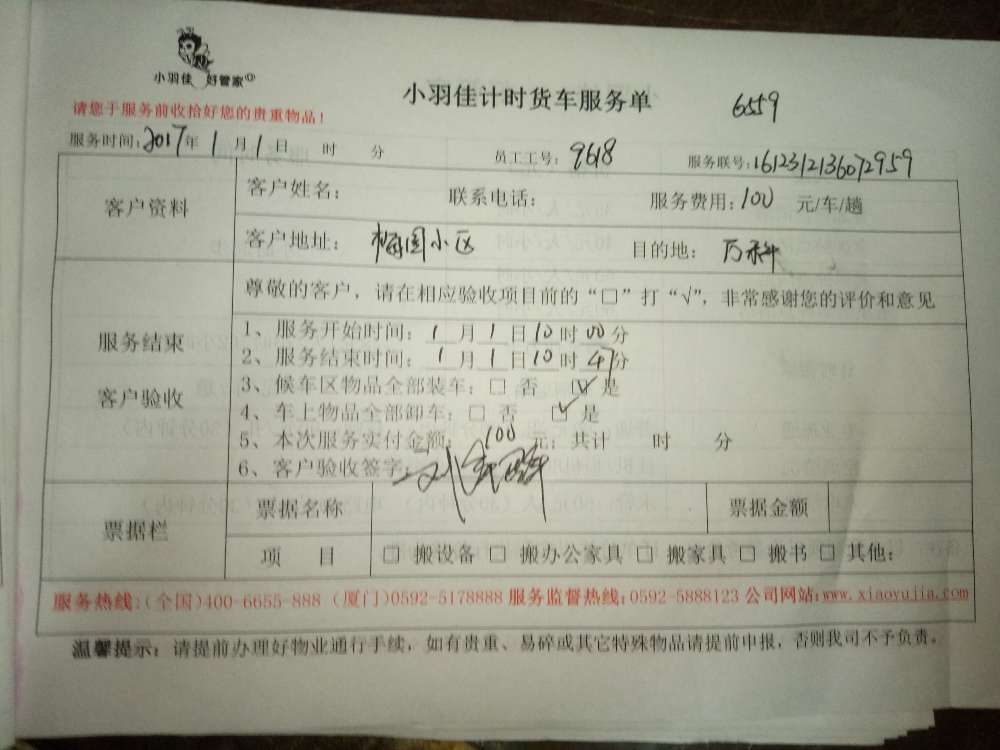 小羽佳 好管家
小羽佳计时货车服务单 6559
请您于服务前收拾好您的贵重物品！
服务时间：2017年1月1日 时 分 员工工号：9618 服务联号：1612312136072959
客户资料
客户姓名： 联系电话： 服务费用：100 元/车/趟
客户地址：梅园小区 目的地：万科
服务结束
客户验收
尊敬的客户，请在相应验收项目前的“□”打“√”，非常感谢您的评价和意见
1、服务开始时间：1月1日10时00分
2、服务结束时间：1月1日10时47分
3、候车区物品全部装车：□ 否 ☑ 是
4、车上物品全部卸车：□ 否 ☑ 是
5、本次服务实付金额：100 元；共计 时 分
6、客户验收签字：
票据栏
票据名称 票据金额
项 目 □ 搬设备 □ 搬办公家具 □ 搬家具 □ 搬书 □ 其他：
服务热线：(全国)400-6655-888 (厦门)0592-5178888 服务监督热线：0592-5888123 公司网站：www.xiaoyujia.com
温馨提示：请提前办理好物业通行手续，如有贵重、易碎或其它特殊物品请提前申报，否则我司不予负责。